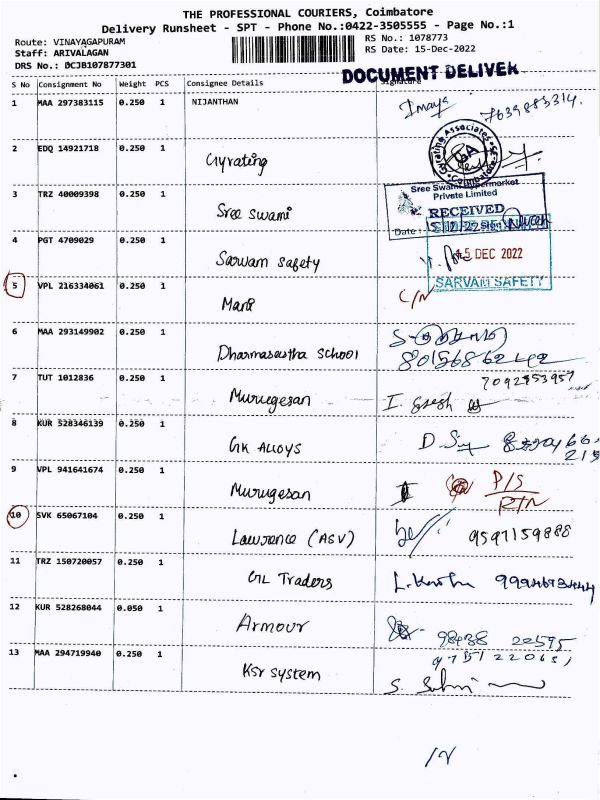 THE PROFESSIONAL COURIERS, Coimbatore
Delivery Runsheet - SPT - Phone No.:0422-3505555 - Page No.:1
Route: VINAYAGAPURAM
Staff: ARIVALAGAN
DRS No.: DCJB107877301
RS No.: 1078773
RS Date: 15-Dec-2022
DOCUMENT DELIVER
S No Consignment No Weight PCS Consignee Details Signature
1 MAA 297383115 0.250 1 NIJANTHAN Imaya 7639883314.
2 EDQ 14921718 0.250 1 Gyrating
Gyrating Associates
GA
Coimbatore
3 TRZ 40009398 0.250 1 Sree Swami
Sree Swami Hypermarket
Private Limited
RECEIVED
Date: Sign
4 PGT 4709029 0.250 1 Sarvam Safety
15 DEC 2022
SARVAM SAFETY
5 VPL 216334061 0.250 1 Mani C/N
6 MAA 293149902 0.250 1 Dharmasastha School
7 TUT 1012836 0.250 1 Murugesan
7092953957
8 KUR 528346139 0.250 1 GK Alloys
9 VPL 941641674 0.250 1 Murugesan P/S
RTN
10 SVK 65067104 0.250 1 Lawrance (ASV) 9597159888
11 TRZ 150720057 0.250 1 GL Traders
12 KUR 528268044 0.050 1 Armour 98438 20595
13 MAA 294719940 0.250 1 KSR System
9751220651